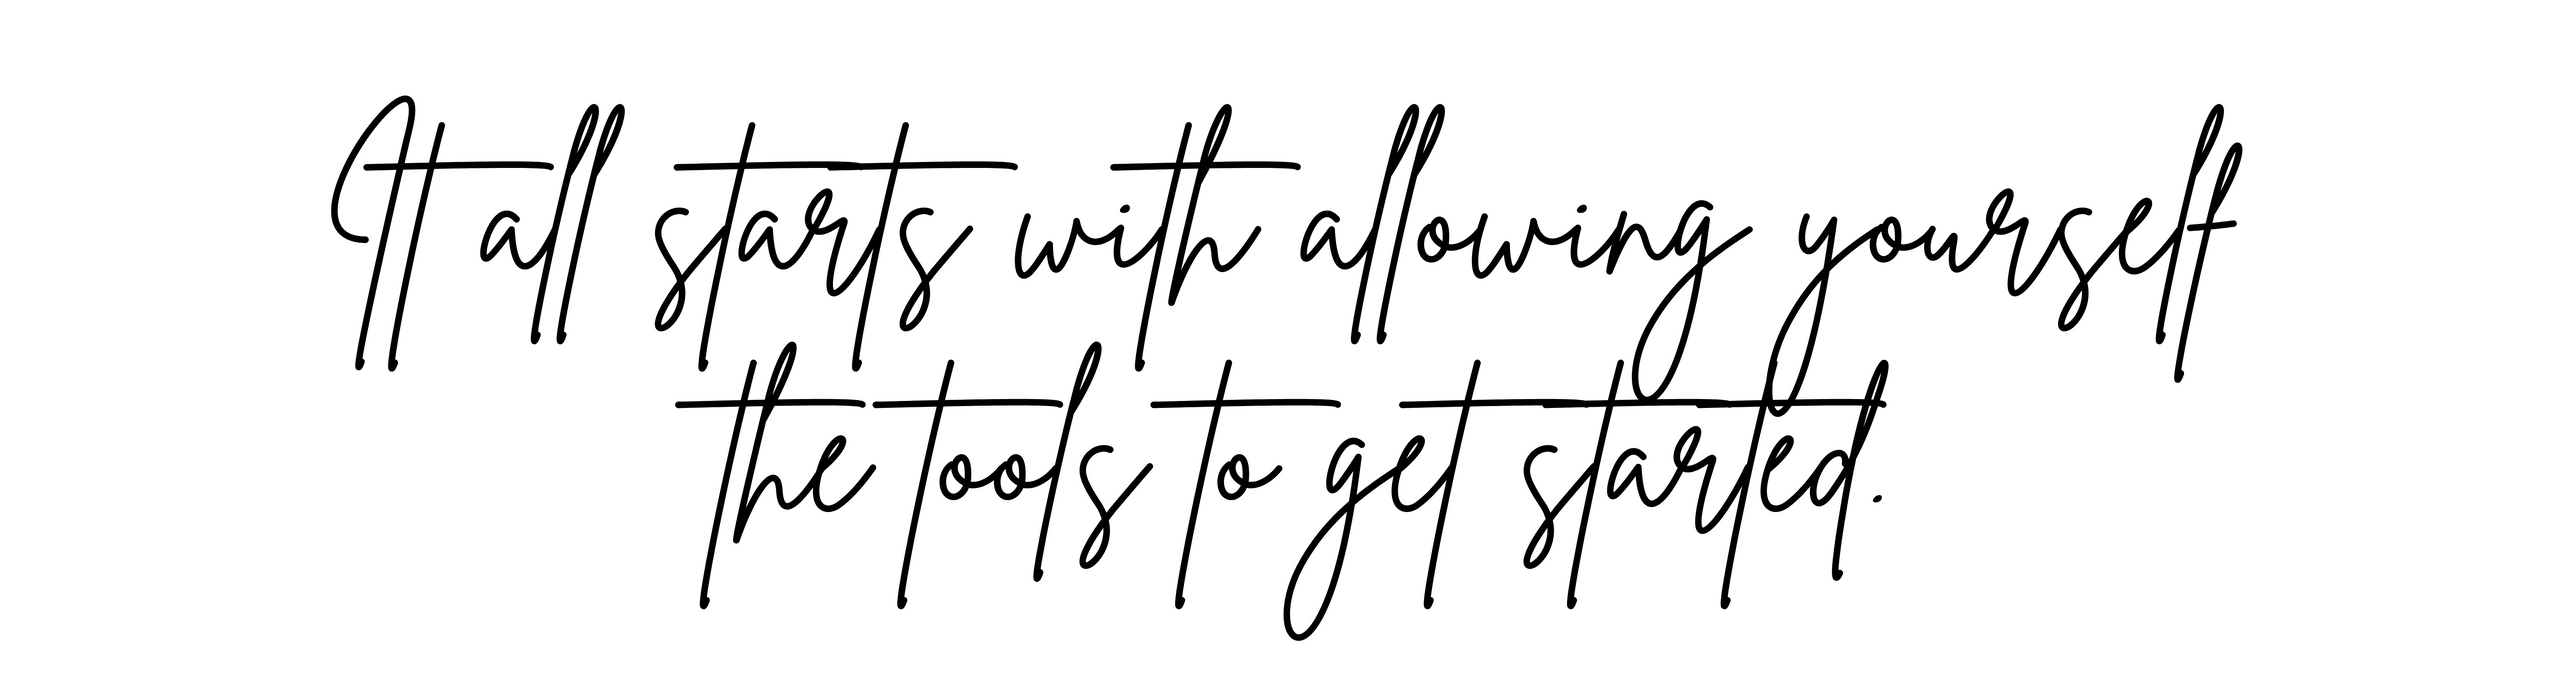 It all starts with allowing yourself
the tools to get started.